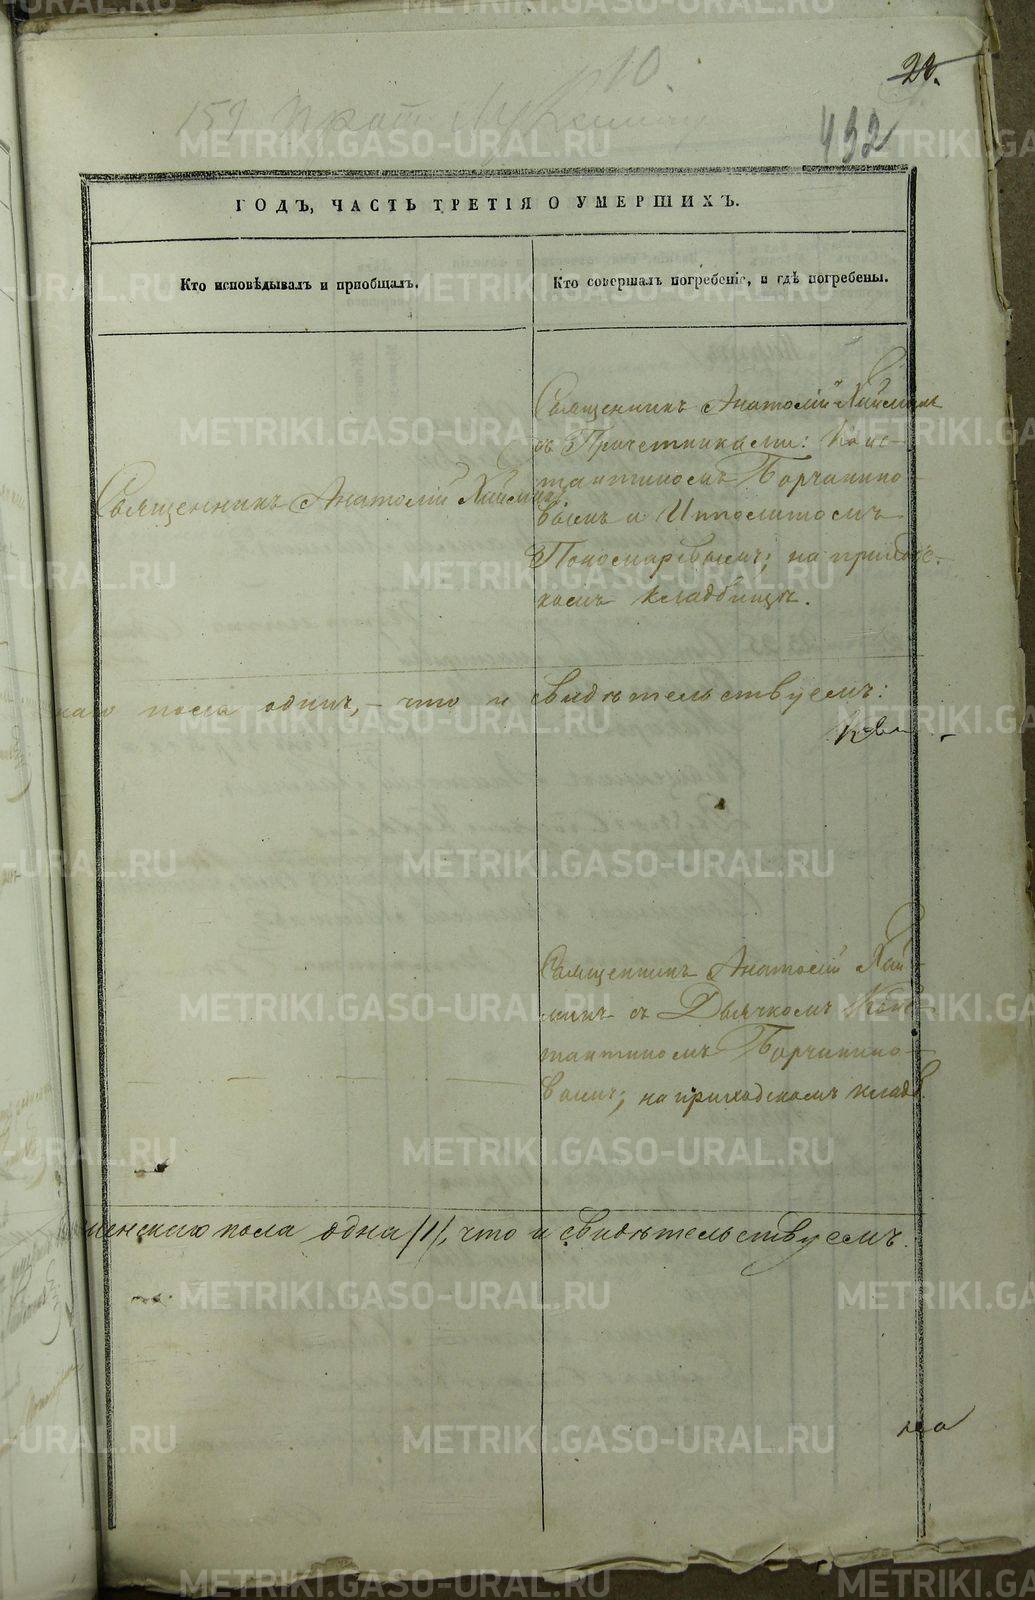 10.
28.
432
ГОДЪ, ЧАСТЬ ТРЕТІЯ О УМЕРШИХЪ.
Кто исповѣдывалъ и пріобщалъ.
Кто совершалъ погребеніе, и гдѣ погребены.
Священникъ Анатолій
Священникъ Анатолій
съ Причетниками: Конс-
тантиномъ Борчанино-
вымъ и Ипполитомъ
Пономаревымъ; на приходс-
комъ кладбищѣ.
каго пола одинъ, – что и свидѣтельствуемъ:
Священникъ Анатолій
съ Дьячкомъ Конс-
тантиномъ Борчанино-
вымъ; на приходскомъ кладб.
женскаго пола одна /1/, что и свидѣтельствуемъ.
METRIKI.GASO-URAL.RU